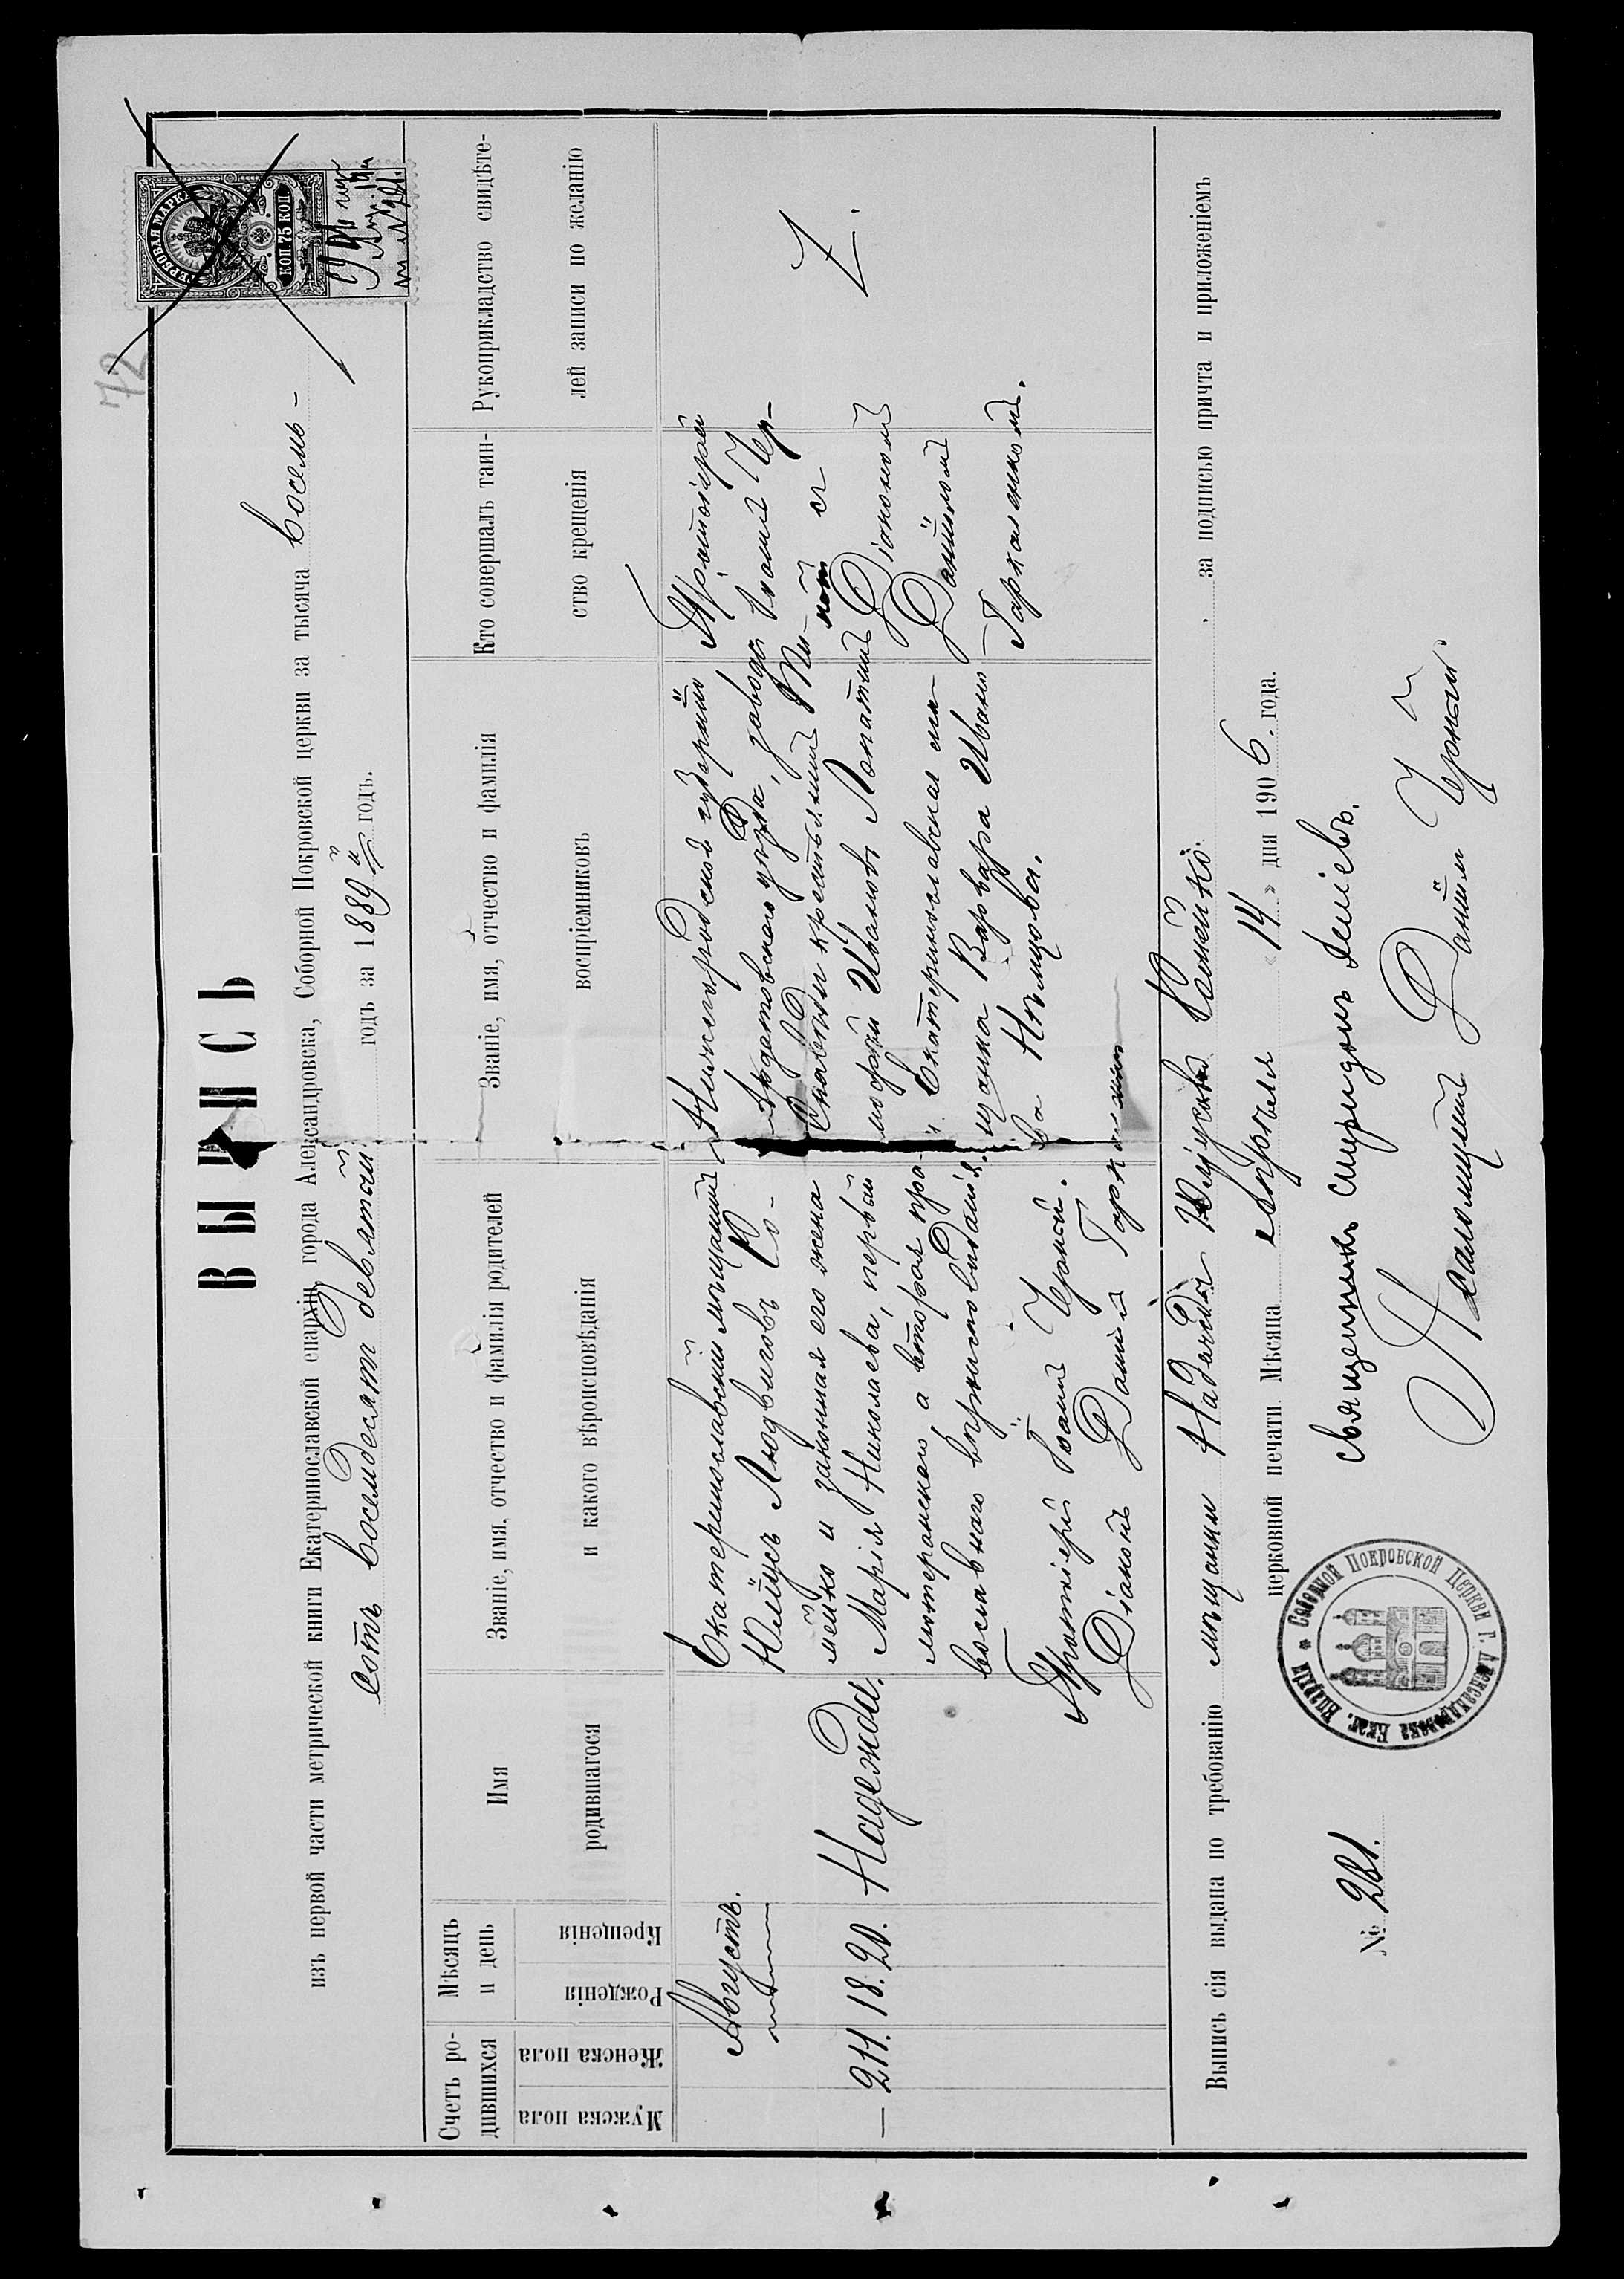 72
ГЕРБОВАЯ МАРКА
КОП 75 КОП
ВЫПИСЬ
изъ первой части метрической книги Екатеринославской епархіи, города Александровска, Соборной Покровской церкви за тысяча восемь-
сотъ восемьдесятъ девятый годъ за 1889й годъ.
Счетъ ро-
дившихся
Мужска пола
Женска пола
Мѣсяцъ
и день
Рожденія
Крещенія
Имя
родившагося
Званіе, имя, отчество и фамилія родителей
и какого вѣроисповѣданія
Званіе, имя, отчество и фамилія
воспріемниковъ
Кто совершалъ таин-
ство крещенія
Рукоприкладство свидѣте-
лей записи по желанію
Августъ.
— 211. 18. 20.
Надежда.
Екатеринославскій мѣщанинъ
Юлiусъ Людвиговъ Ко-
мейко и законная его жена
Марія Николаева, первый
лютеранскаго а вторая пра-
вославнаго вѣроисповѣданія.
Протоіерей Іоаннъ Черный.
Діаконъ Даніилъ
Нижегородской губерніи
Ардатовскаго уѣзда, завода
крестьянинъ Ти-
мофей Ивановъ Лопатинъ
и Екатеринославская мѣ-
щанка Варвара Ивано
ва Нѣмцова.
Протоіерей
Іоаннъ Чер-
ный съ
Діакономъ
Даніиломъ
Гаркаленкомъ.
Выпись сія выдана по требованію мѣщанки Надежды за подписью причта и приложеніемъ
церковной печати. Мѣсяца апрѣля «14» дня 1906. года.
Священникъ Спиридонъ
Псаломщикъ Даніилъ Черный
№ 281.
Соборной Покровской Церкви г. Александровска Екат. Епархіи